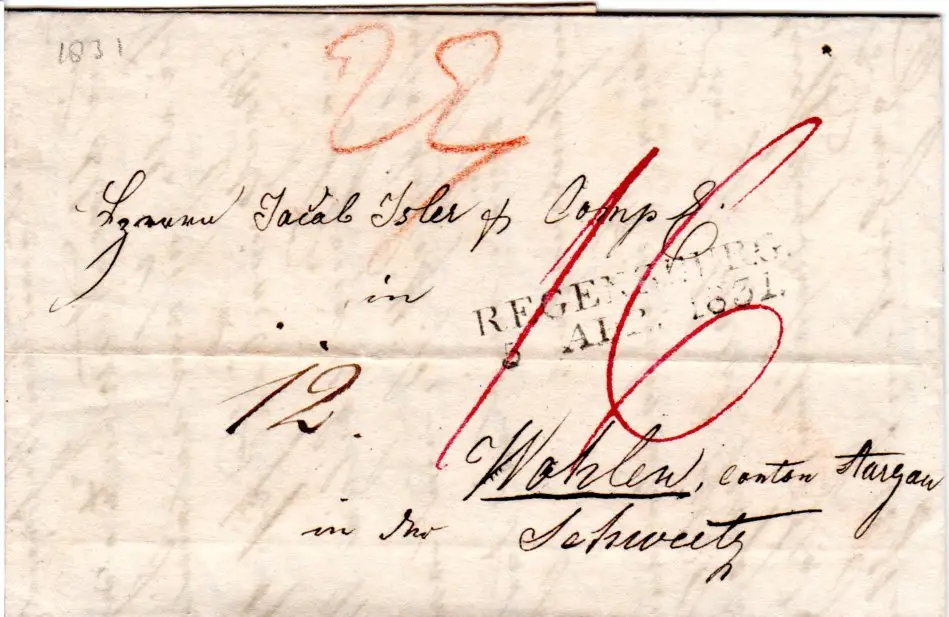 1831
Herrn Jacob Isler & Comp
in
REGENSBURG
5 APR. 1831.
16
12.
Wohlen, canton Aargau
in der Schweitz